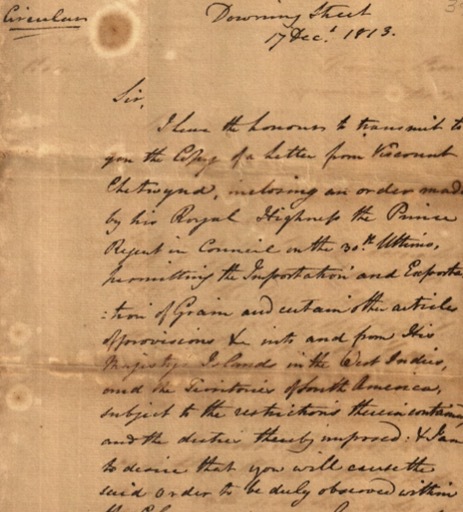 Circular
Downing Street
17 Decr. 1813.
Sir,
I have the honour to transmit to
you the Copy of a Letter from Viscount
Chetwynd, inclosing an order made
by his Royal Highness the Prince
Regent in Council on the 30th Ultimo,
permitting the Importation and Exporta
:tion of Grain and certain other articles
of provisions &c into and from His
Majestys Islands in the West Indies,
and the Territories of South America,
subject to the restrictions therein contain
and the duties thereby imposed: & I am
to desire that you will cause the
said order to be duly observed within